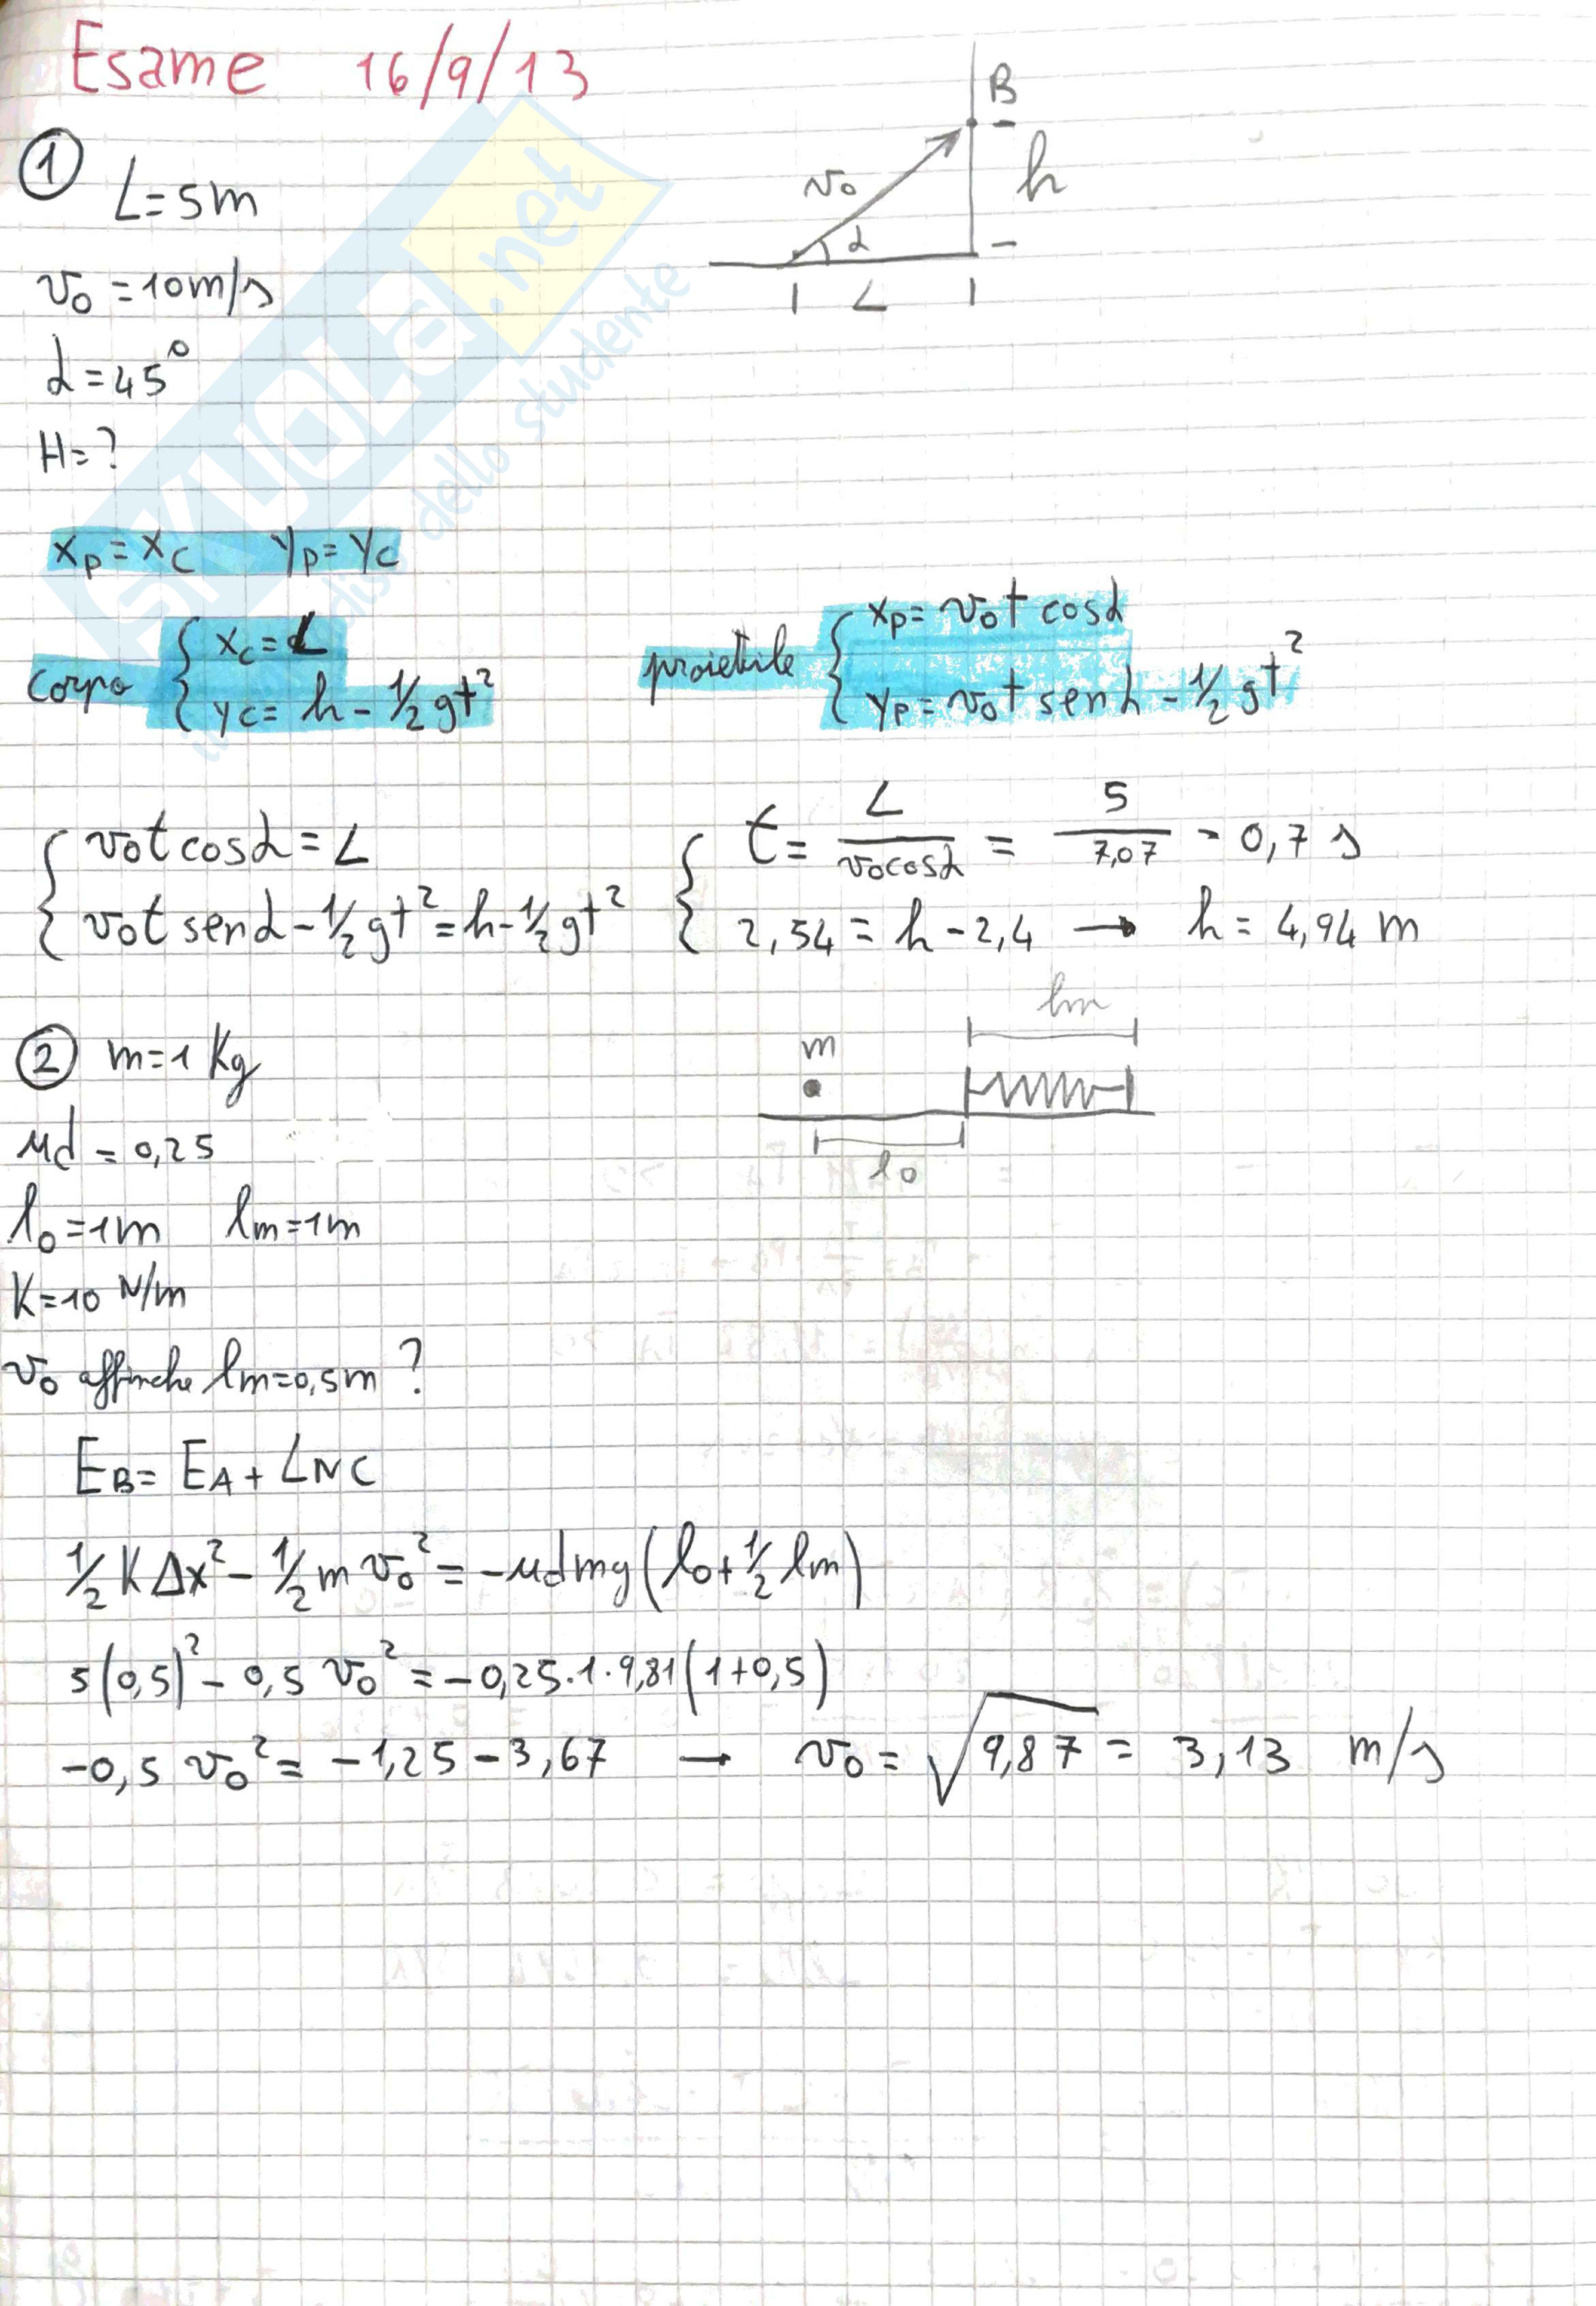 Esame 16/9/13
B
① L=5m
v₀
h
α
v₀ = 10m/s
L
α = 45°
H = ?
xP = xC yP = yC
corpo { xC = L
yC = h - ½gt²
proiettile { xP = v₀t cosα
yP = v₀t senα - ½gt²
{ v₀t cosα = L
v₀t senα - ½gt² = h - ½gt²
{ t = L/(v₀cosα) = 5/7,07 - 0,7 s
2,54 = h - 2,4 → h = 4,94 m
② m=1 Kg
lm
m
μd = 0,25
l₀
l₀=1m lm=1m
K=10 N/m
v₀ affinche lm=0,5m ?
EB = EA + LNC
½ K Δx² - ½ m v₀² = -μdmg(l₀+½ lm)
5(0,5)² - 0,5 v₀² = -0,25·1·9,81(1+0,5)
-0,5 v₀² = -1,25 - 3,67 → v₀ = √9,87 = 3,13 m/s
SKUOLA.net
dello studente